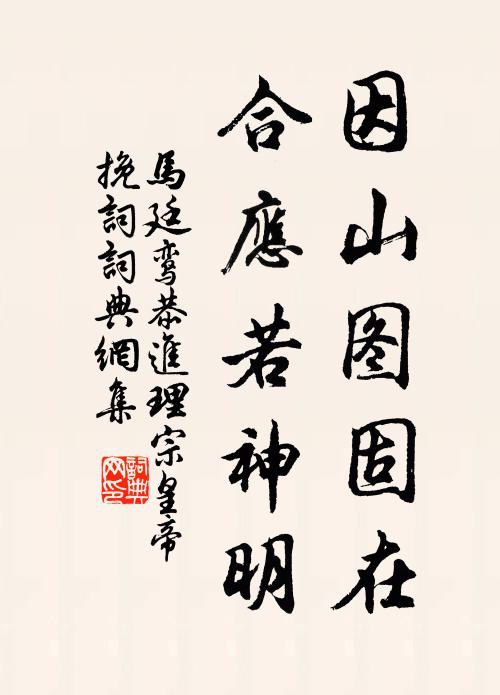 因山图固在
合應若神明
馬廷鸾恭進理宗皇帝
挽詞詞典網集
詞典
网印